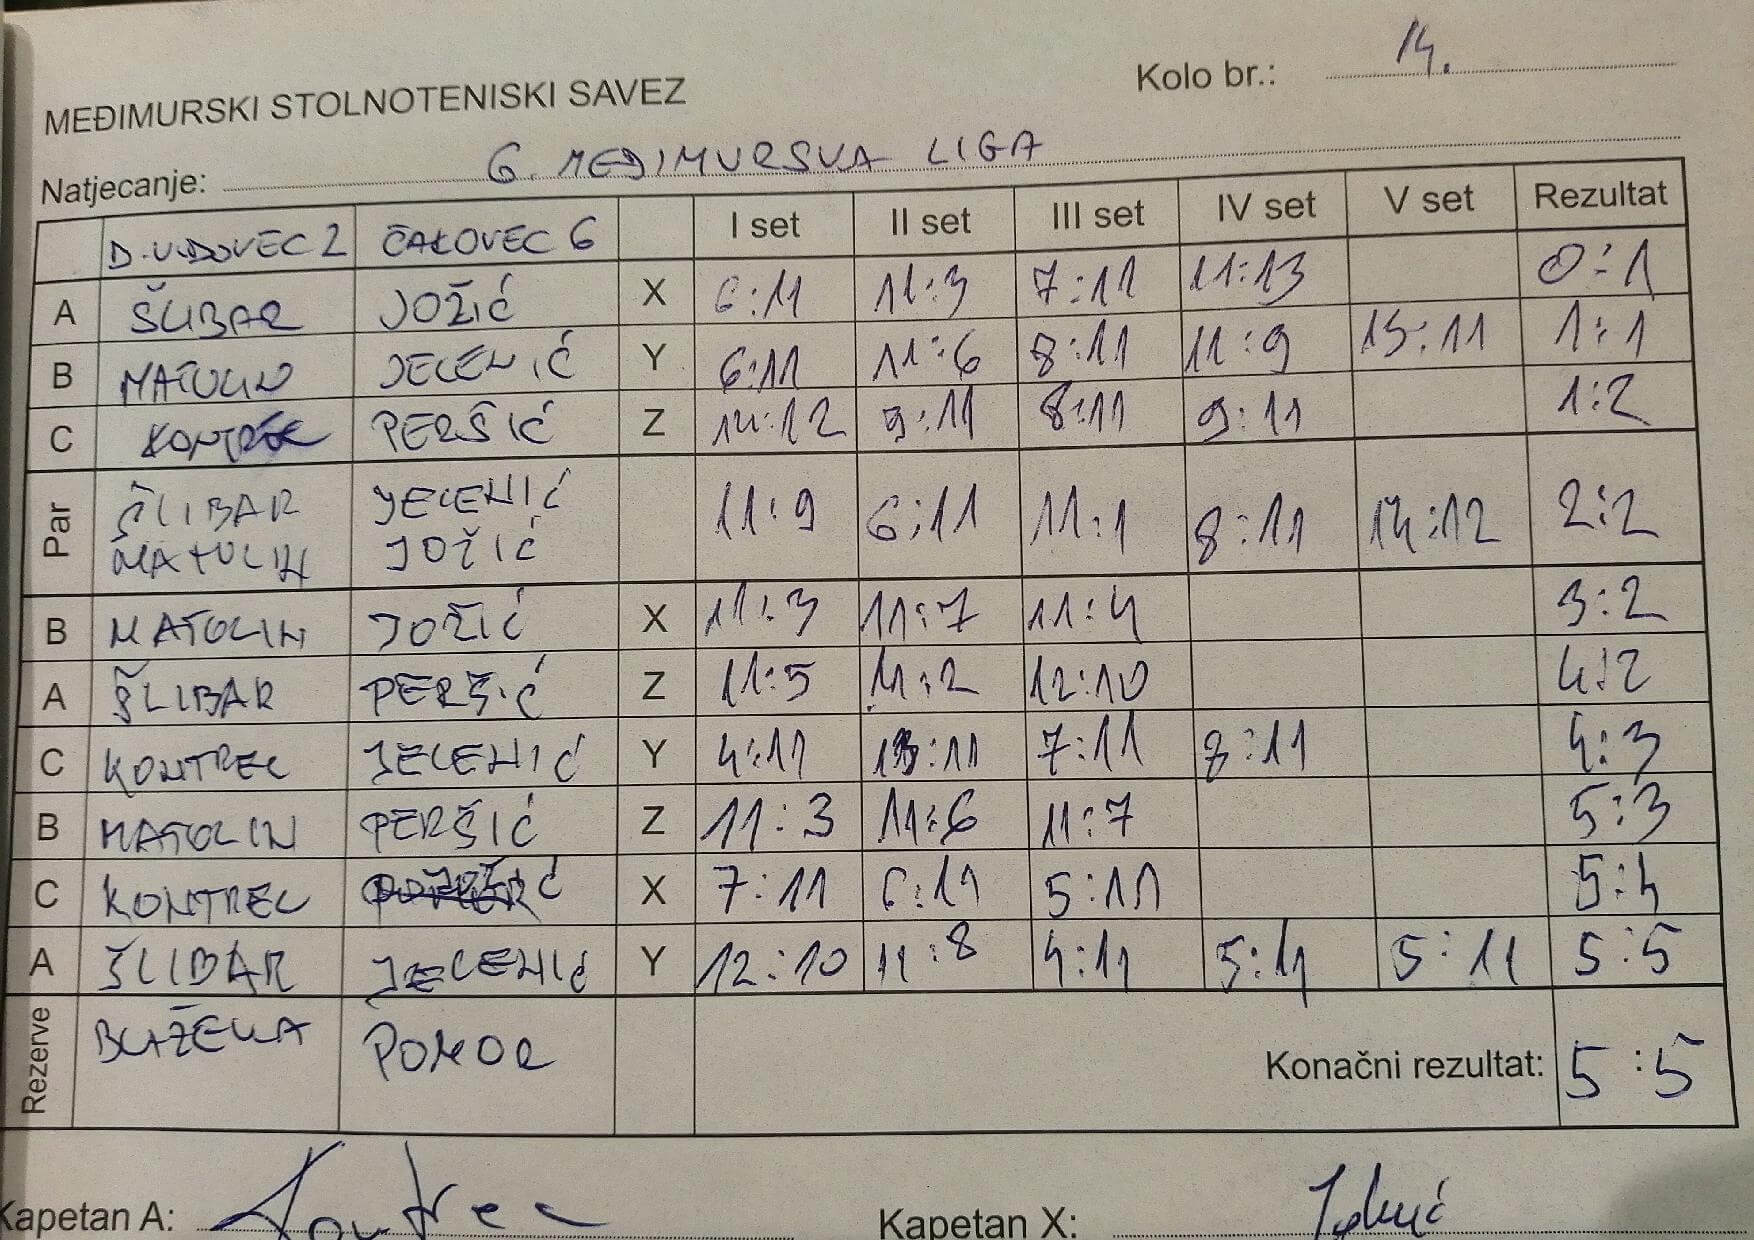 Kolo br.: 14.
MEĐIMURSKI STOLNOTENISKI SAVEZ
Natjecanje: 6. MEĐIMURSKA LIGA
D. VIDOVEC 2 ČAKOVEC 6 I set II set III set IV set V set Rezultat
A ŠLIBAR JOŽIĆ X 6:11 11:3 7:11 11:13 0:1
B MATOLIN JELENIĆ Y 6:11 11:6 8:11 11:9 13:11 1:1
C KONTREC PERŠIĆ Z 14:12 9:11 8:11 9:11 1:2
Par ŠLIBAR JELENIĆ 11:9 6:11 11:1 8:11 14:12 2:2
MATOLIN JOŽIĆ
B MATOLIN JOŽIĆ X 11:3 11:7 11:4 3:2
A ŠLIBAR PERŠIĆ Z 11:5 11:2 12:10 4:2
C KONTREC JELENIĆ Y 4:11 13:11 7:11 8:11 4:3
B MATOLIN PERŠIĆ Z 11:3 11:6 11:7 5:3
C KONTREC X 7:11 6:11 5:11 5:4
A ŠLIBAR JELENIĆ Y 12:10 11:8 4:11 5:11 5:11 5:5
Rezerve BLAŽEKA POMOR Konačni rezultat: 5:5
Kapetan A: Kontrec Kapetan X: